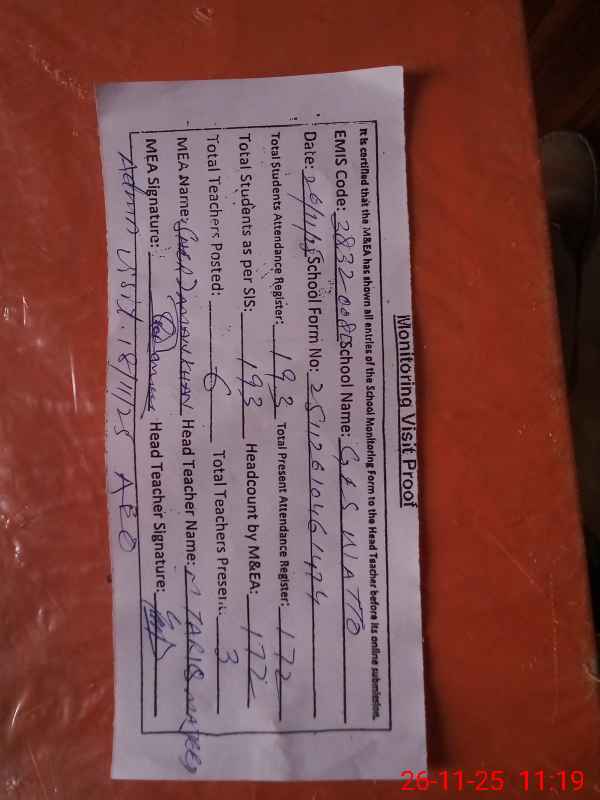 Monitoring Visit Proof
It is certified that the M&EA has shown all entries of the School Monitoring Form to the Head Teacher before its online submission.
EMIS Code: 38320081 School Name: GES WATTO
Date: 26/11/25 School Form No: 251126104614
Total Students Attendance Register: 193 Total Present Attendance Register: 172
Total Students as per SIS: 193 Headcount by M&EA: 172
Total Teachers Posted: 6 Total Teachers Present: 3
MEA Name: KHAN Head Teacher Name: M TARIQ
MEA Signature: Head Teacher Signature:
Admn visit. 18/11/25 AEO
26-11-25 11:19